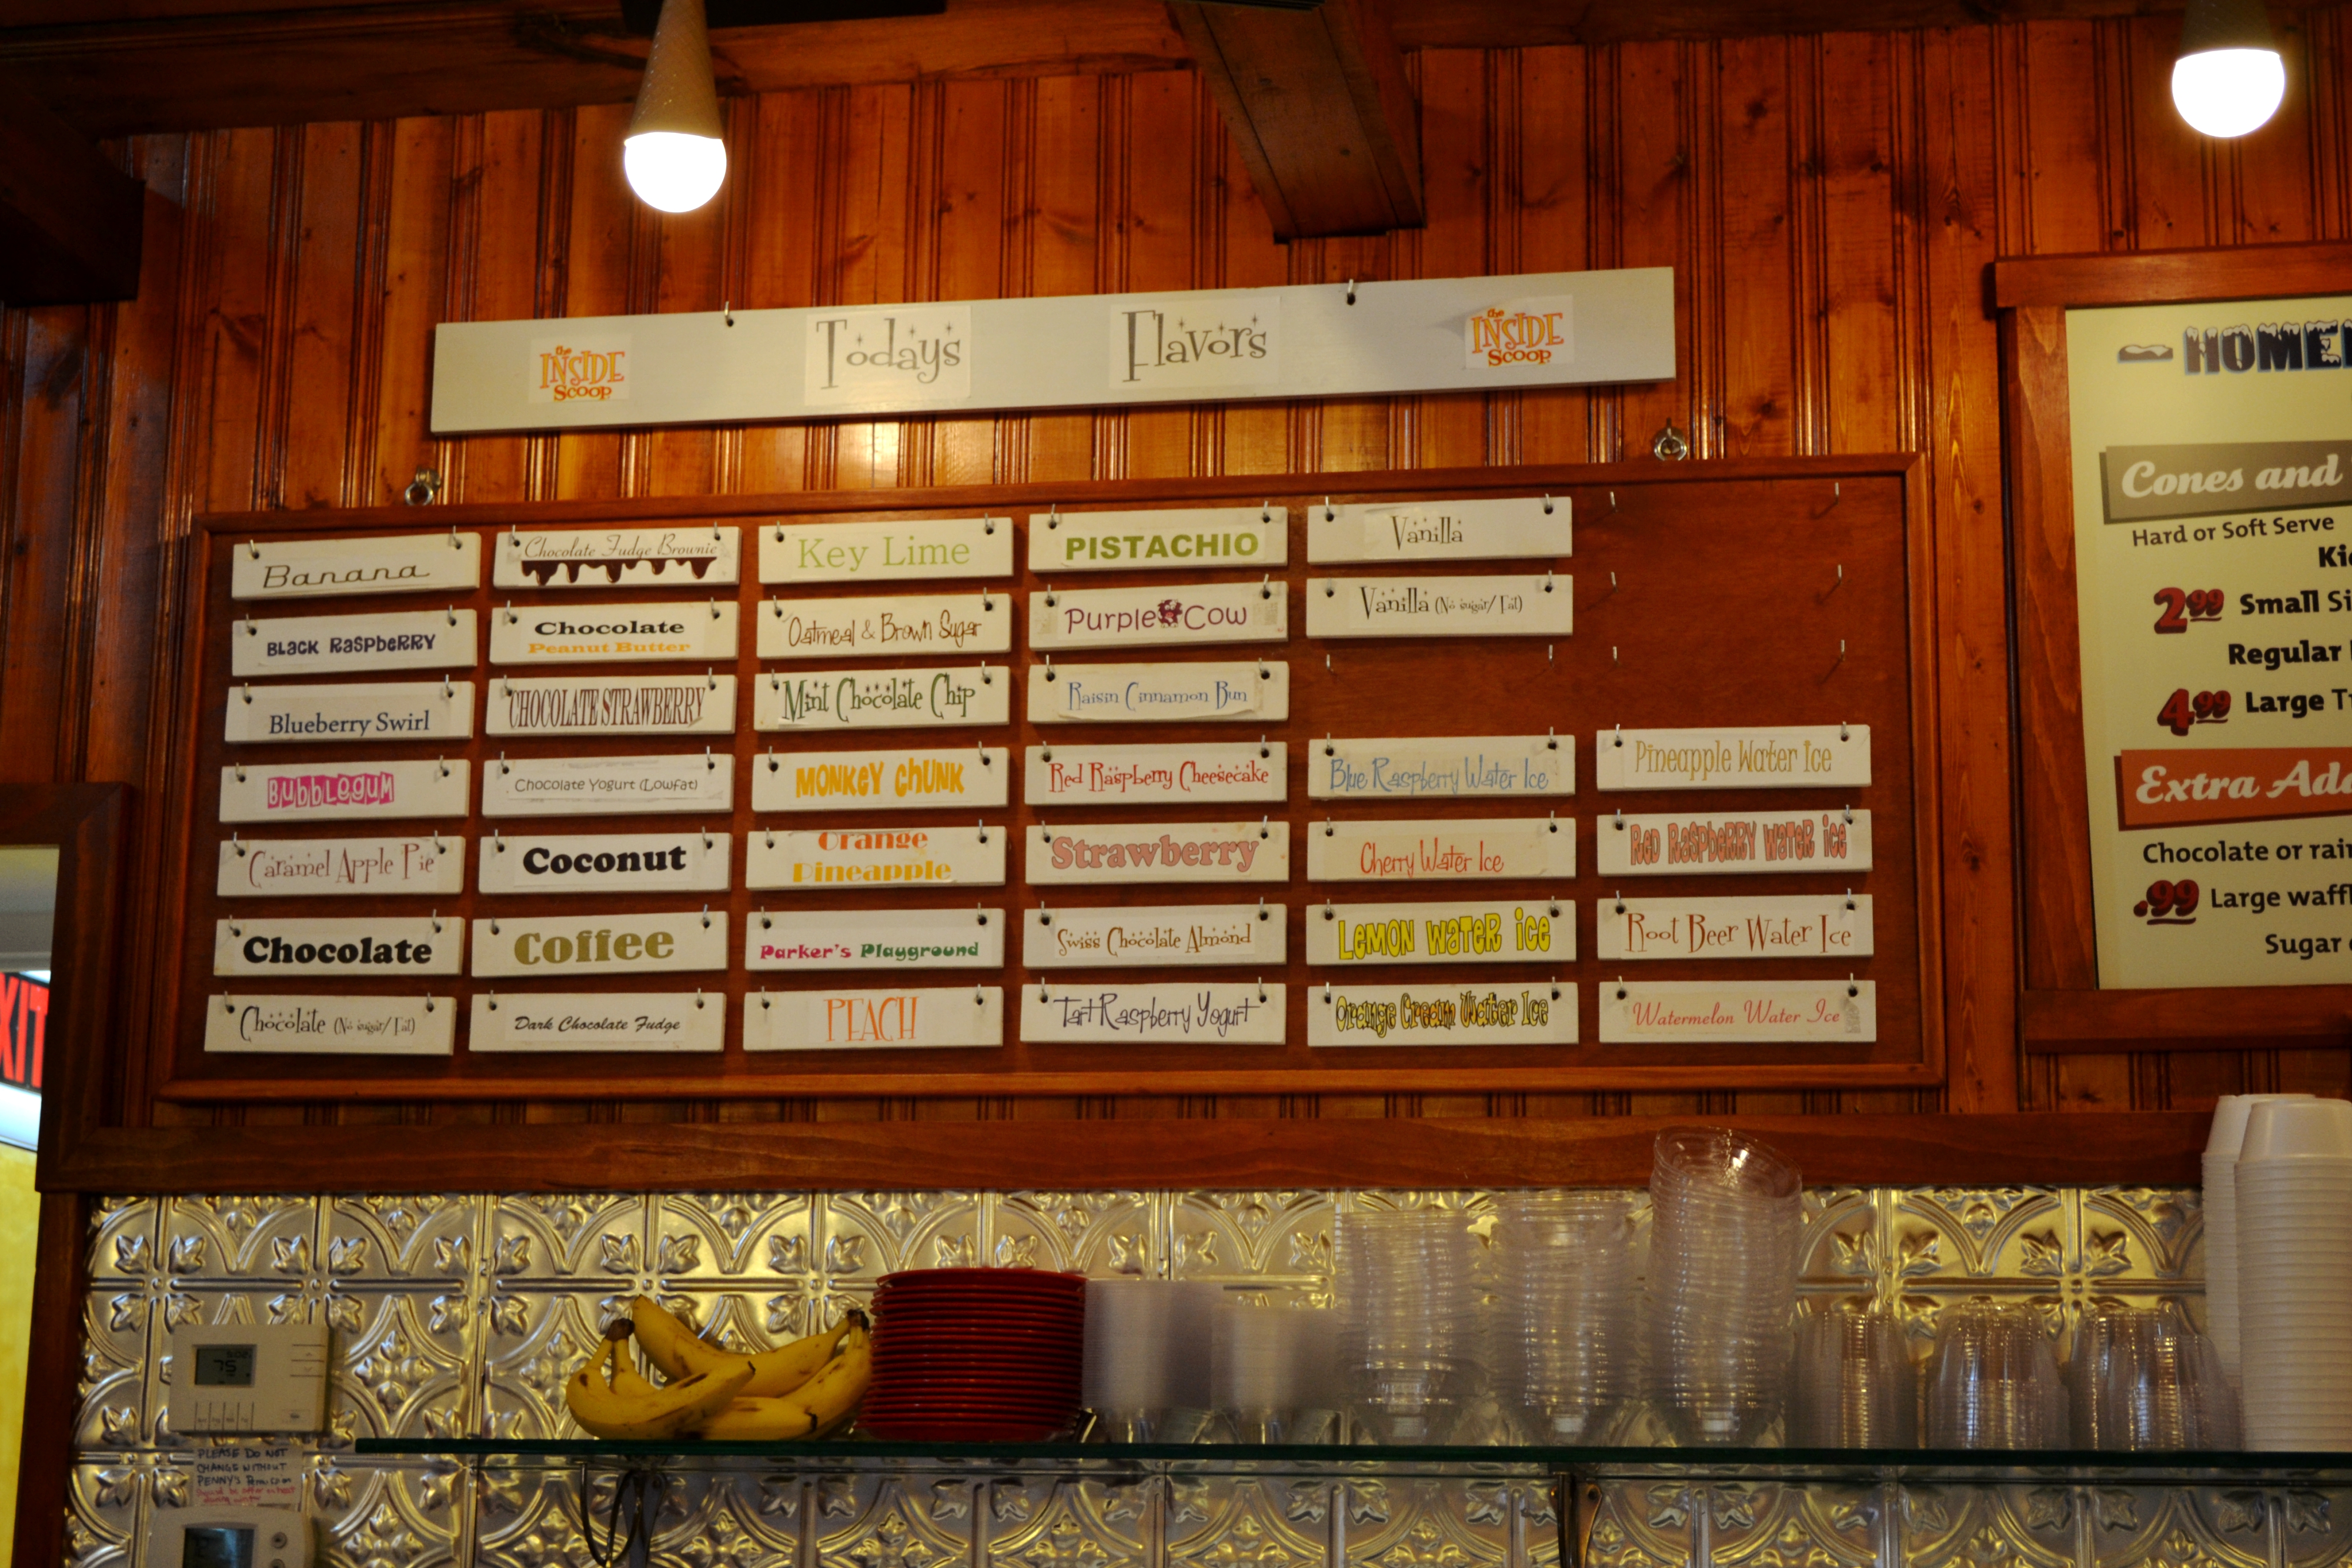 the
INSIDE
Scoop
Todays
Flavors
the
INSIDE
Scoop
Banana
Black Raspberry
Blueberry Swirl
Bubblegum
Caramel Apple Pie
Chocolate
Chocolate (No sugar/Fat)
Chocolate Fudge Brownie
Chocolate
Peanut Butter
CHOCOLATE STRAWBERRY
Chocolate Yogurt (Lowfat)
Coconut
Coffee
Dark Chocolate Fudge
Key Lime
Oatmeal & Brown Sugar
Mint Chocolate Chip
Monkey Chunk
Orange
Pineapple
Parker's Playground
PEACH
PISTACHIO
Purple Cow
Raisin Cinnamon Bun
Red Raspberry Cheesecake
Strawberry
Swiss Chocolate Almond
Tart Raspberry Yogurt
Vanilla
Vanilla (No sugar/Fat)
Blue Raspberry Water Ice
Cherry Water Ice
Lemon Water Ice
Orange Cream Water Ice
Pineapple Water Ice
Red Raspberry Water Ice
Root Beer Water Ice
Watermelon Water Ice
HOME
Cones and
Hard or Soft Serve
Ki
2.99 Small Si
Regular
4.99 Large T
Extra Ad
Chocolate or rai
.99 Large waff
Sugar
XIT
75
PLEASE DO NOT
CHANGE WITHOUT
PENNY'S